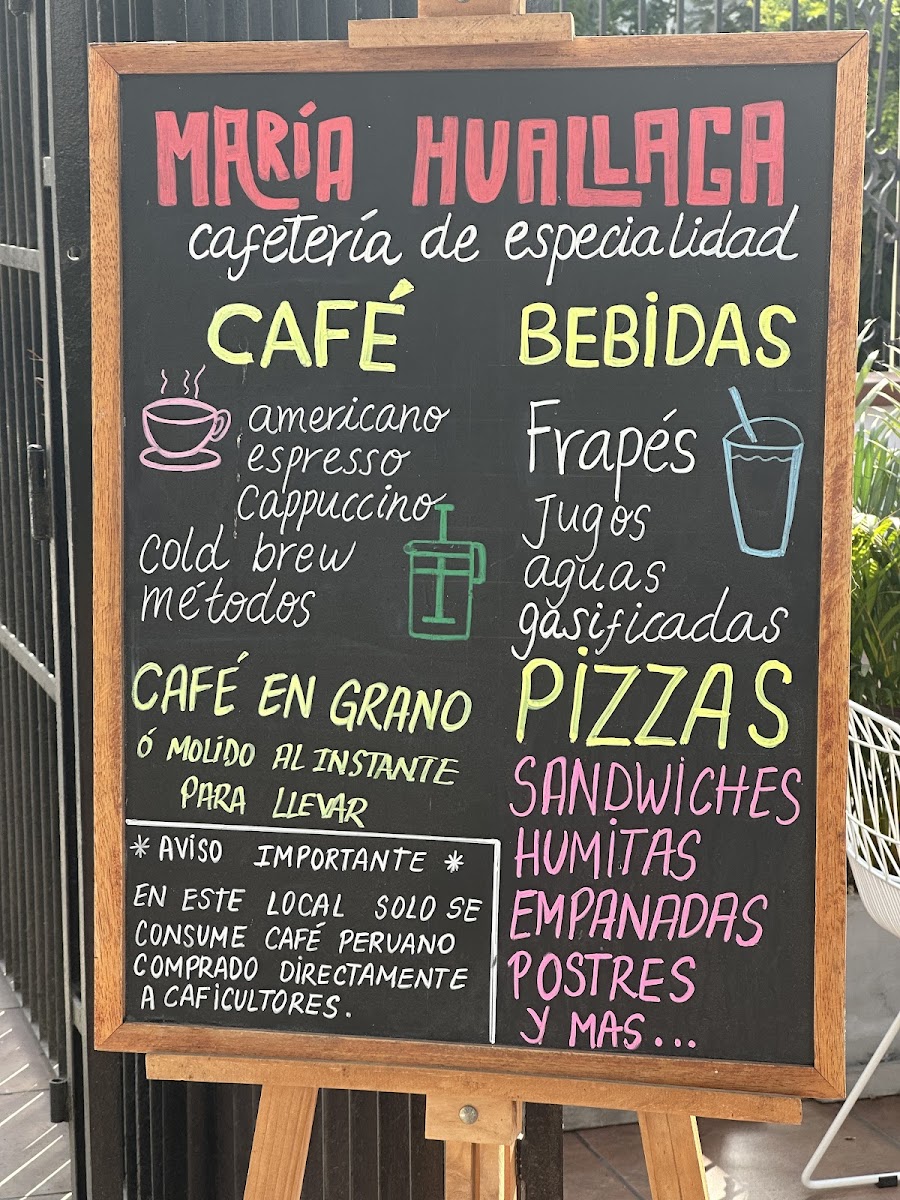 MARÍA HUALLAGA
cafetería de especialidad
CAFÉ
americano
espresso
cappuccino
cold brew
métodos
CAFÉ EN GRANO
Ó MOLIDO AL INSTANTE
PARA LLEVAR
* AVISO IMPORTANTE *
EN ESTE LOCAL SOLO SE
CONSUME CAFÉ PERUANO
COMPRADO DIRECTAMENTE
A CAFICULTORES.
BEBIDAS
Frapés
Jugos
aguas
gasificadas
PIZZAS
SANDWICHES
HUMITAS
EMPANADAS
POSTRES
Y MAS...